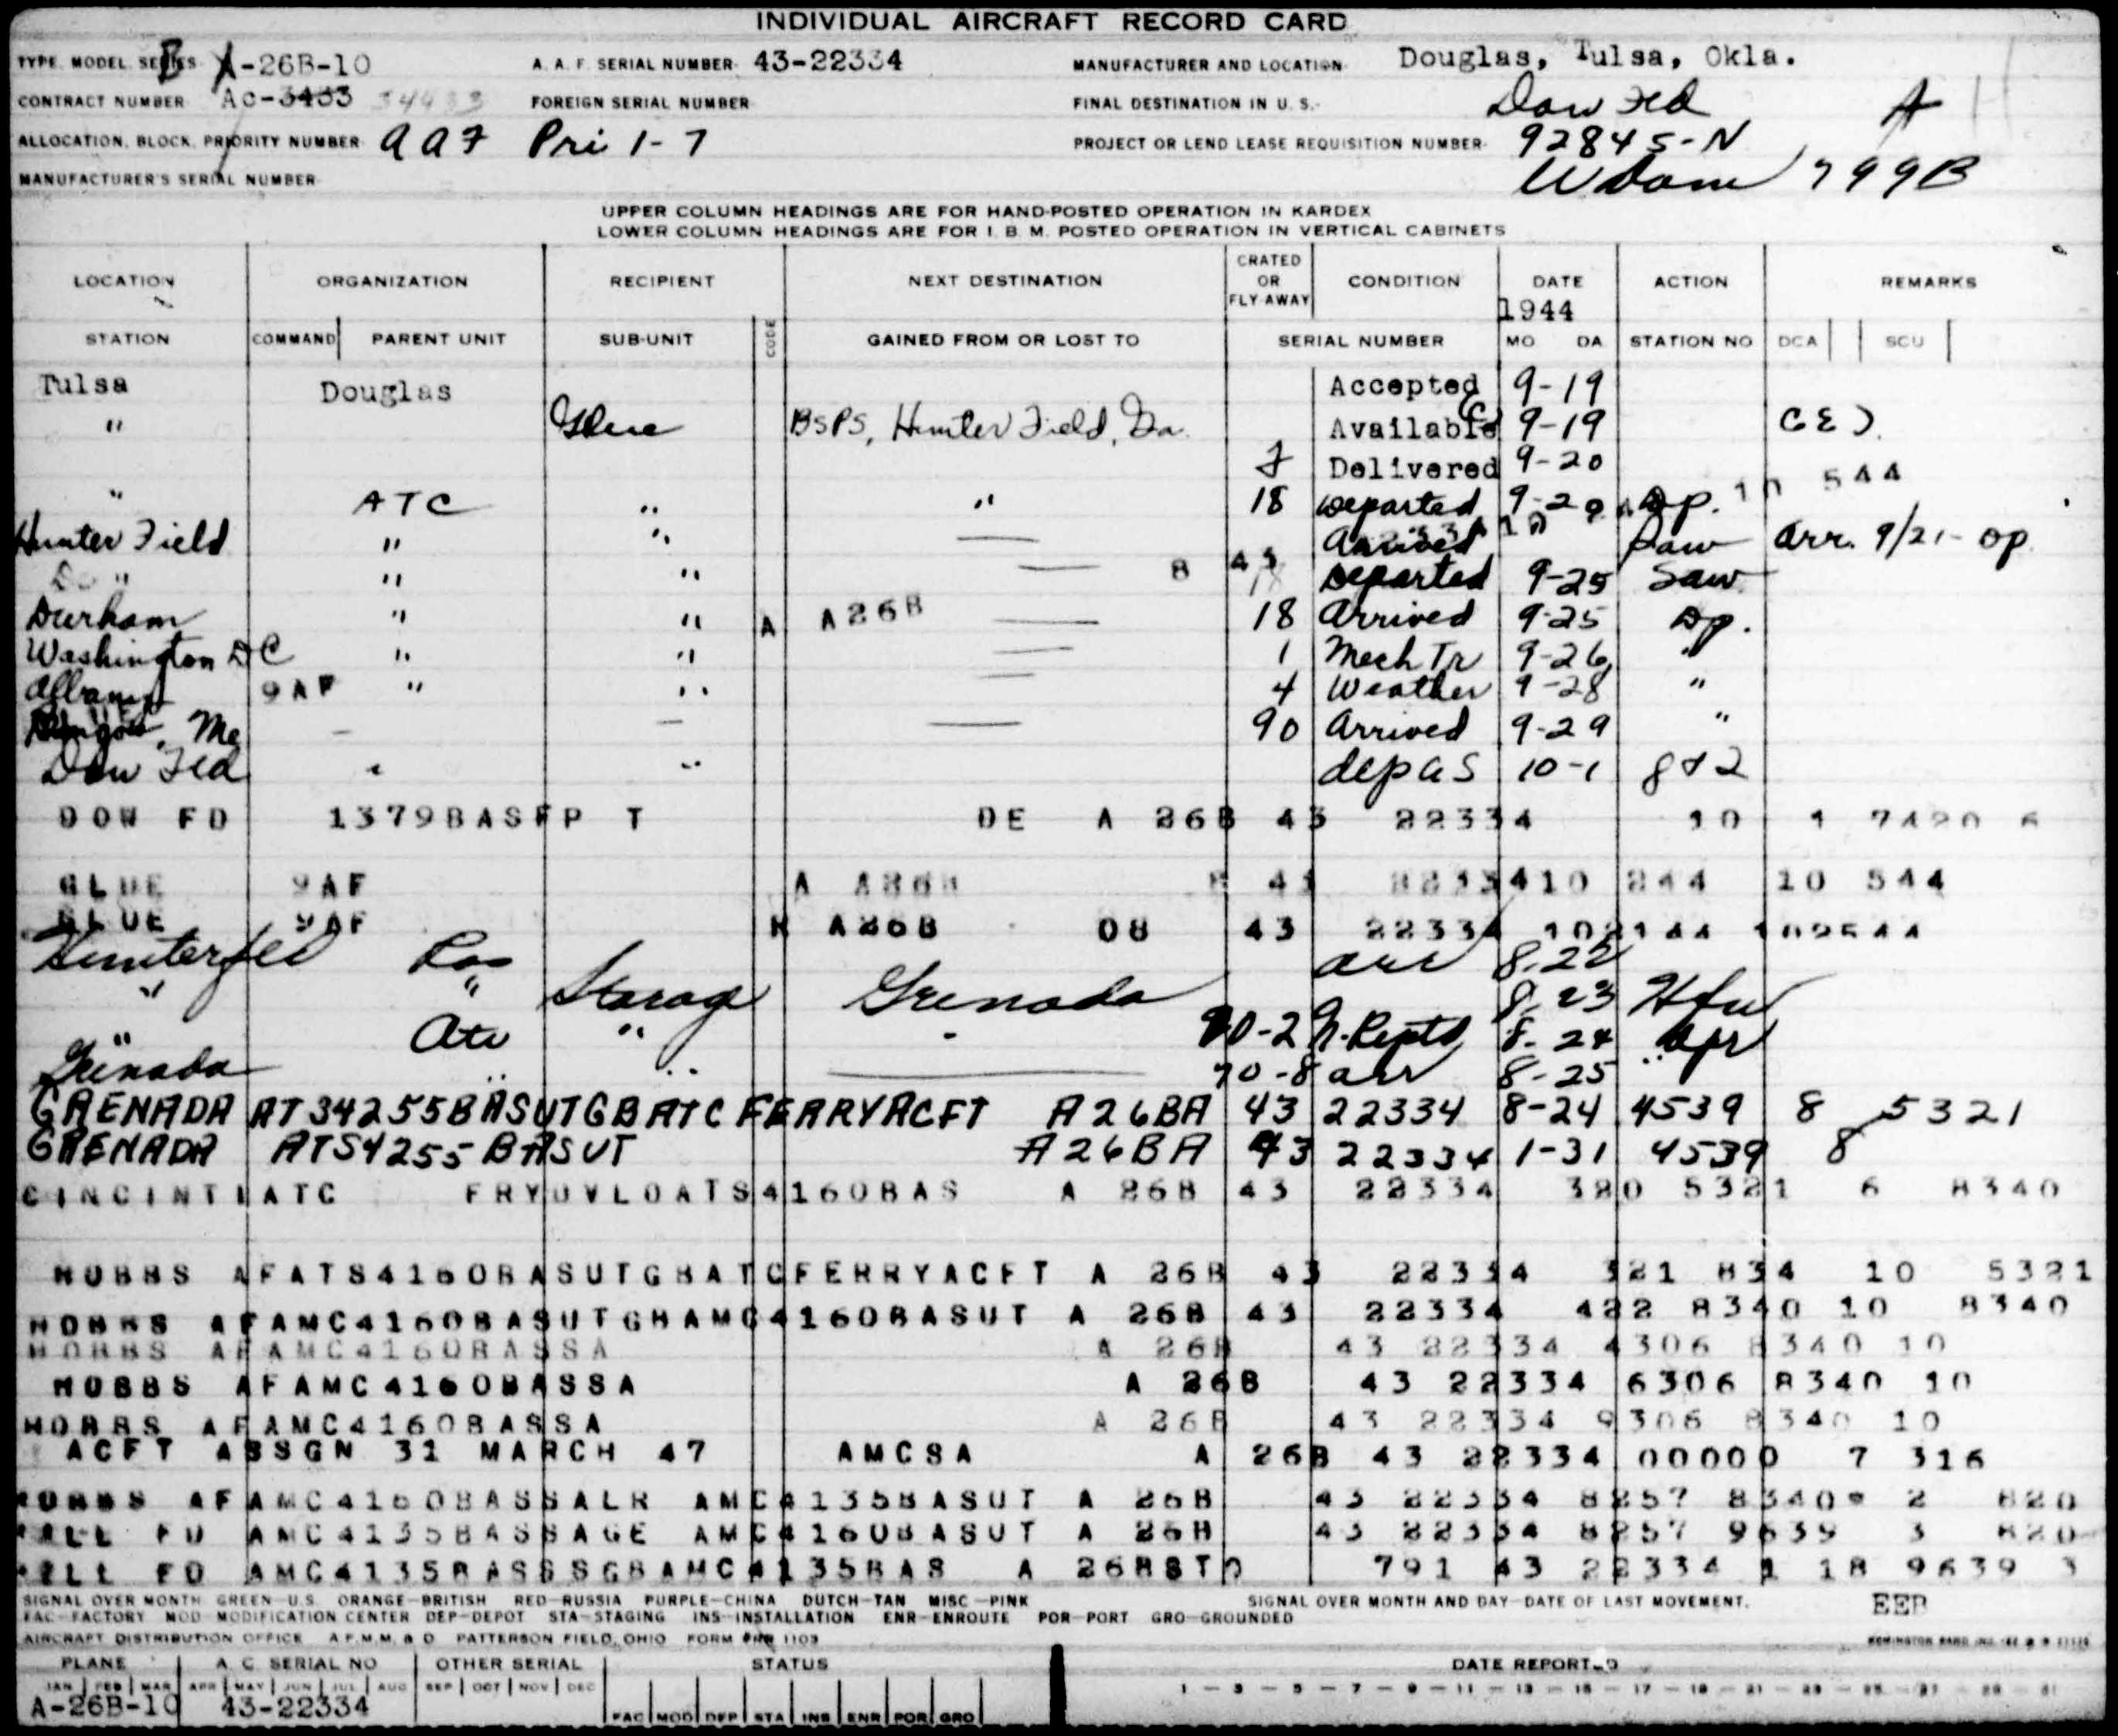 INDIVIDUAL AIRCRAFT RECORD CARD
TYPE, MODEL, SERIES B A-26B-10 A. A. F. SERIAL NUMBER 43-22334 MANUFACTURER AND LOCATION Douglas, Tulsa, Okla.
CONTRACT NUMBER Ac-3433 34433 FOREIGN SERIAL NUMBER FINAL DESTINATION IN U. S. Dow Fld A
ALLOCATION, BLOCK, PRIORITY NUMBER AAF Pri 1-7 PROJECT OR LEND LEASE REQUISITION NUMBER 92845-N
MANUFACTURER'S SERIAL NUMBER 799B
UPPER COLUMN HEADINGS ARE FOR HAND-POSTED OPERATION IN KARDEX
LOWER COLUMN HEADINGS ARE FOR I. B. M. POSTED OPERATION IN VERTICAL CABINETS
LOCATION ORGANIZATION RECIPIENT NEXT DESTINATION CRATED OR FLY-AWAY CONDITION DATE 1944 ACTION REMARKS
STATION COMMAND PARENT UNIT SUB-UNIT CODE GAINED FROM OR LOST TO SERIAL NUMBER MO DA STATION NO DCA SCU
Tulsa Douglas Accepted 9-19
" Glue BSPS, Hunter Field, Ga. Available 9-19 GE).
Delivered 9-20
" ATC " " 18 Departed 9-20 Dp. 10 544
Hunter Field " " — Arrived Paw Arr. 9/21- op.
Do " " " — B 43 18 Departed 9-25 Saw
Durham " " A A26B — 18 Arrived 9-25 Dp.
Washington DC " " — 1 Mech Tr 9-26 "
Albany 9AF " " — 4 Weather 9-28 "
Bangor, Me — — — 90 Arrived 9-29 "
Dow Fld " " depas 10-1 8&2
DOW FD 1379BASFP T DE A 26B 43 22334 10 1 7420 6
GLUE 9AF A A26B B 43 22334 10 244 10 544
GLUE 9AF R A26B 08 43 22334 102144 102544
Hunterfld arr 8.22
" " Storage Grenada 8.23
" Atc " " 8-24
Grenada " " — 90-8 arr 8-25
GRENADA AT34255BASUTGBATCFERRYACFT A26BA 43 22334 8-24 4539 8 5321
GRENADA ATS4255BASUT A26BA 43 22334 1-31 4539 8
CINCINTIATC FRYDVLOATS4160BAS A 26B 43 22334 320 5321 6 8340
HOBBS AFATS4160BASUTGBATCFERRYACFT A 26B 43 22334 321 834 10 5321
HOBBS AFAMC4160BASUTGBAMC4160BASUT A 26B 43 22334 422 8340 10 8340
HOBBS AFAMC4160BASSA A 26B 43 22334 4306 8340 10
HOBBS AFAMC4160BASSA A 26B 43 22334 6306 8340 10
HOBBS AFAMC4160BASSA A 26B 43 22334 9306 8340 10
ACFT ASSGN 31 MARCH 47 AMCSA A 26B 43 22334 00000 7 316
HOBBS AFAMC4160BASSALR AMC4135BASUT A 26B 43 22334 8257 8340 2 820
HILL FD AMC4135BASSAGE AMC4160BASUT A 26B 43 22334 8257 9639 3 820
HILL FD AMC4135BASSSGBAMC4135BAS A 26BSTO 791 43 22334 1 18 9639 3
SIGNAL OVER MONTH GREEN-U.S. ORANGE-BRITISH RED-RUSSIA PURPLE-CHINA DUTCH-TAN MISC.-PINK SIGNAL OVER MONTH AND DAY-DATE OF LAST MOVEMENT. EEB
FAC-FACTORY MOD-MODIFICATION CENTER DEP-DEPOT STA-STAGING INS-INSTALLATION ENR-ENROUTE POR-PORT GRO-GROUNDED
AIRCRAFT DISTRIBUTION OFFICE A.F.M.M. & D. PATTERSON FIELD, OHIO FORM 1103
PLANE A. C. SERIAL NO OTHER SERIAL STATUS DATE REPORTED
JAN FEB MAR APR MAY JUN JUL AUG SEP OCT NOV DEC 1 - 3 - 5 - 7 - 9 - 11 - 13 - 15 - 17 - 19 - 21 - 23 - 25 - 27 - 29 - 31
A-26B-10 43-22334 FAC MOD DEP STA INS ENR POR GRO